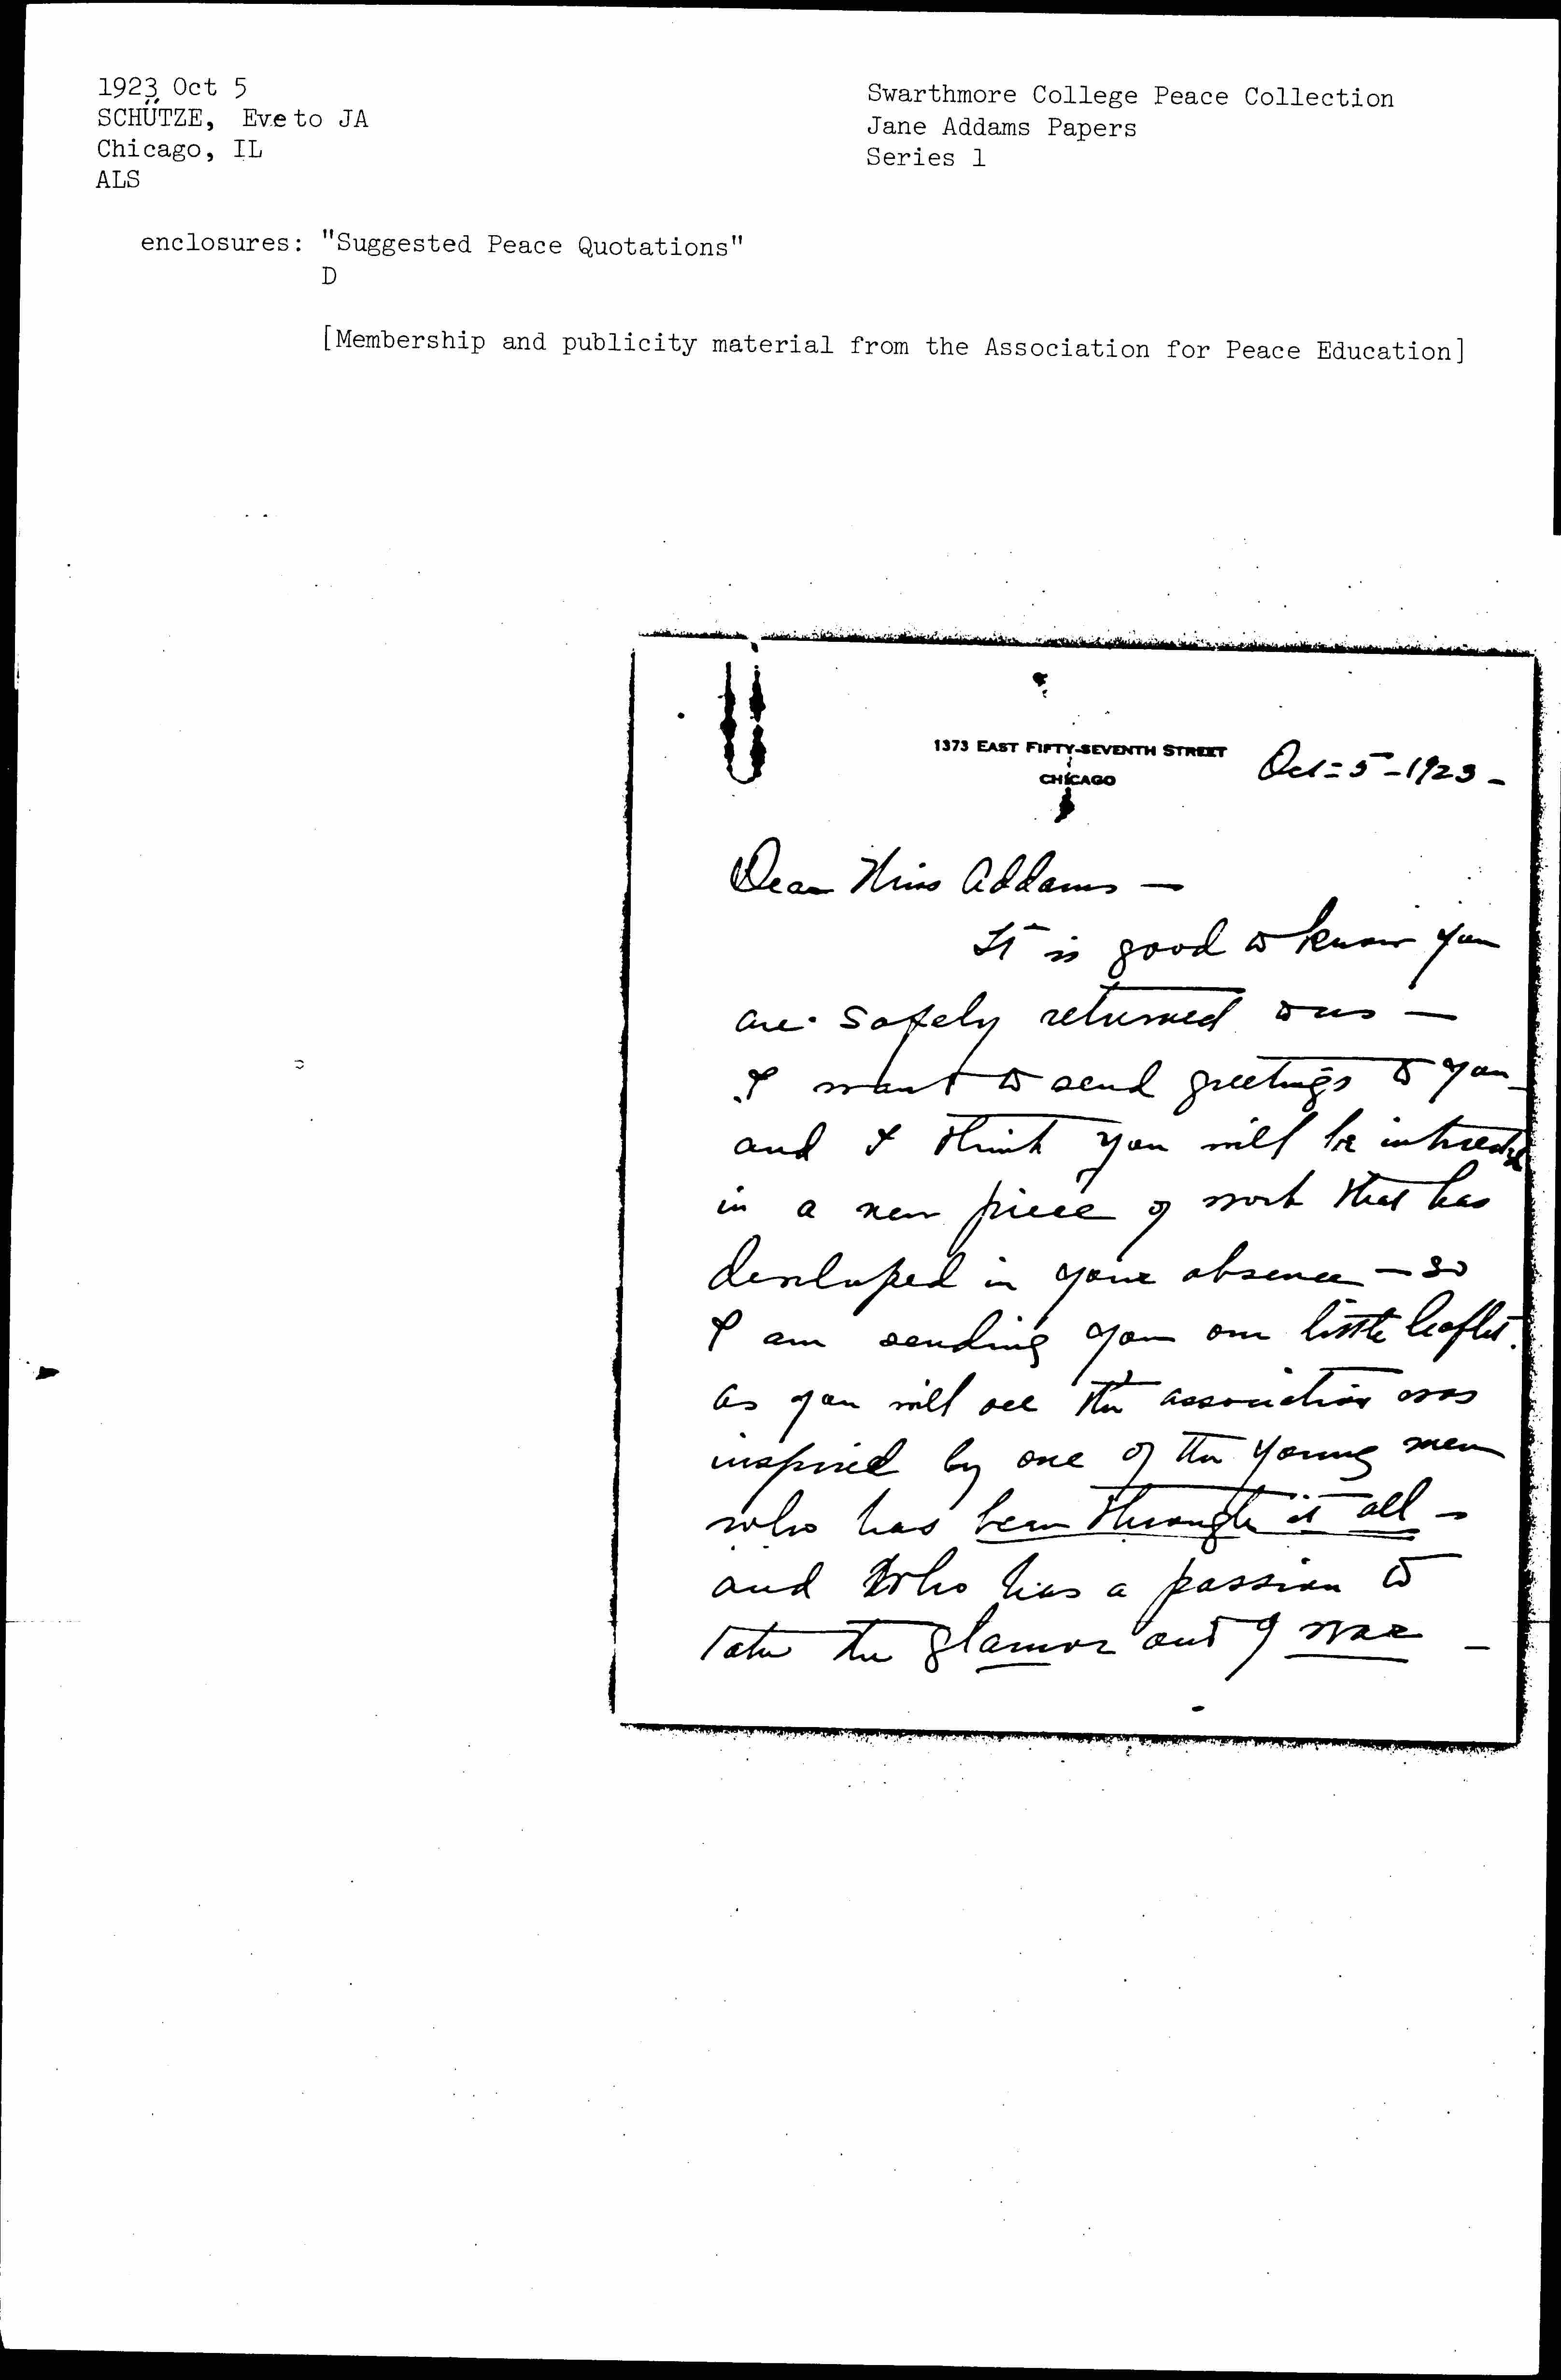 1923 Oct 5
SCHÜTZE, Eve to JA
Chicago, IL
ALS
Swarthmore College Peace Collection
Jane Addams Papers
Series 1
enclosures: "Suggested Peace Quotations"
D
[Membership and publicity material from the Association for Peace Education]
1373 EAST FIFTY-SEVENTH STREET
CHICAGO
Oct-5-1923-
Dear Miss Addams —
It is good to know you
are safely returned to us —
I want to send greetings to you
and I think you will be interested
in a new piece of work that has
developed in your absence — so
I am sending you our little leaflet.
As you will see the association was
inspired by one of the young men
who has been through it all -
and who has a passion to
take the glamor out of war -